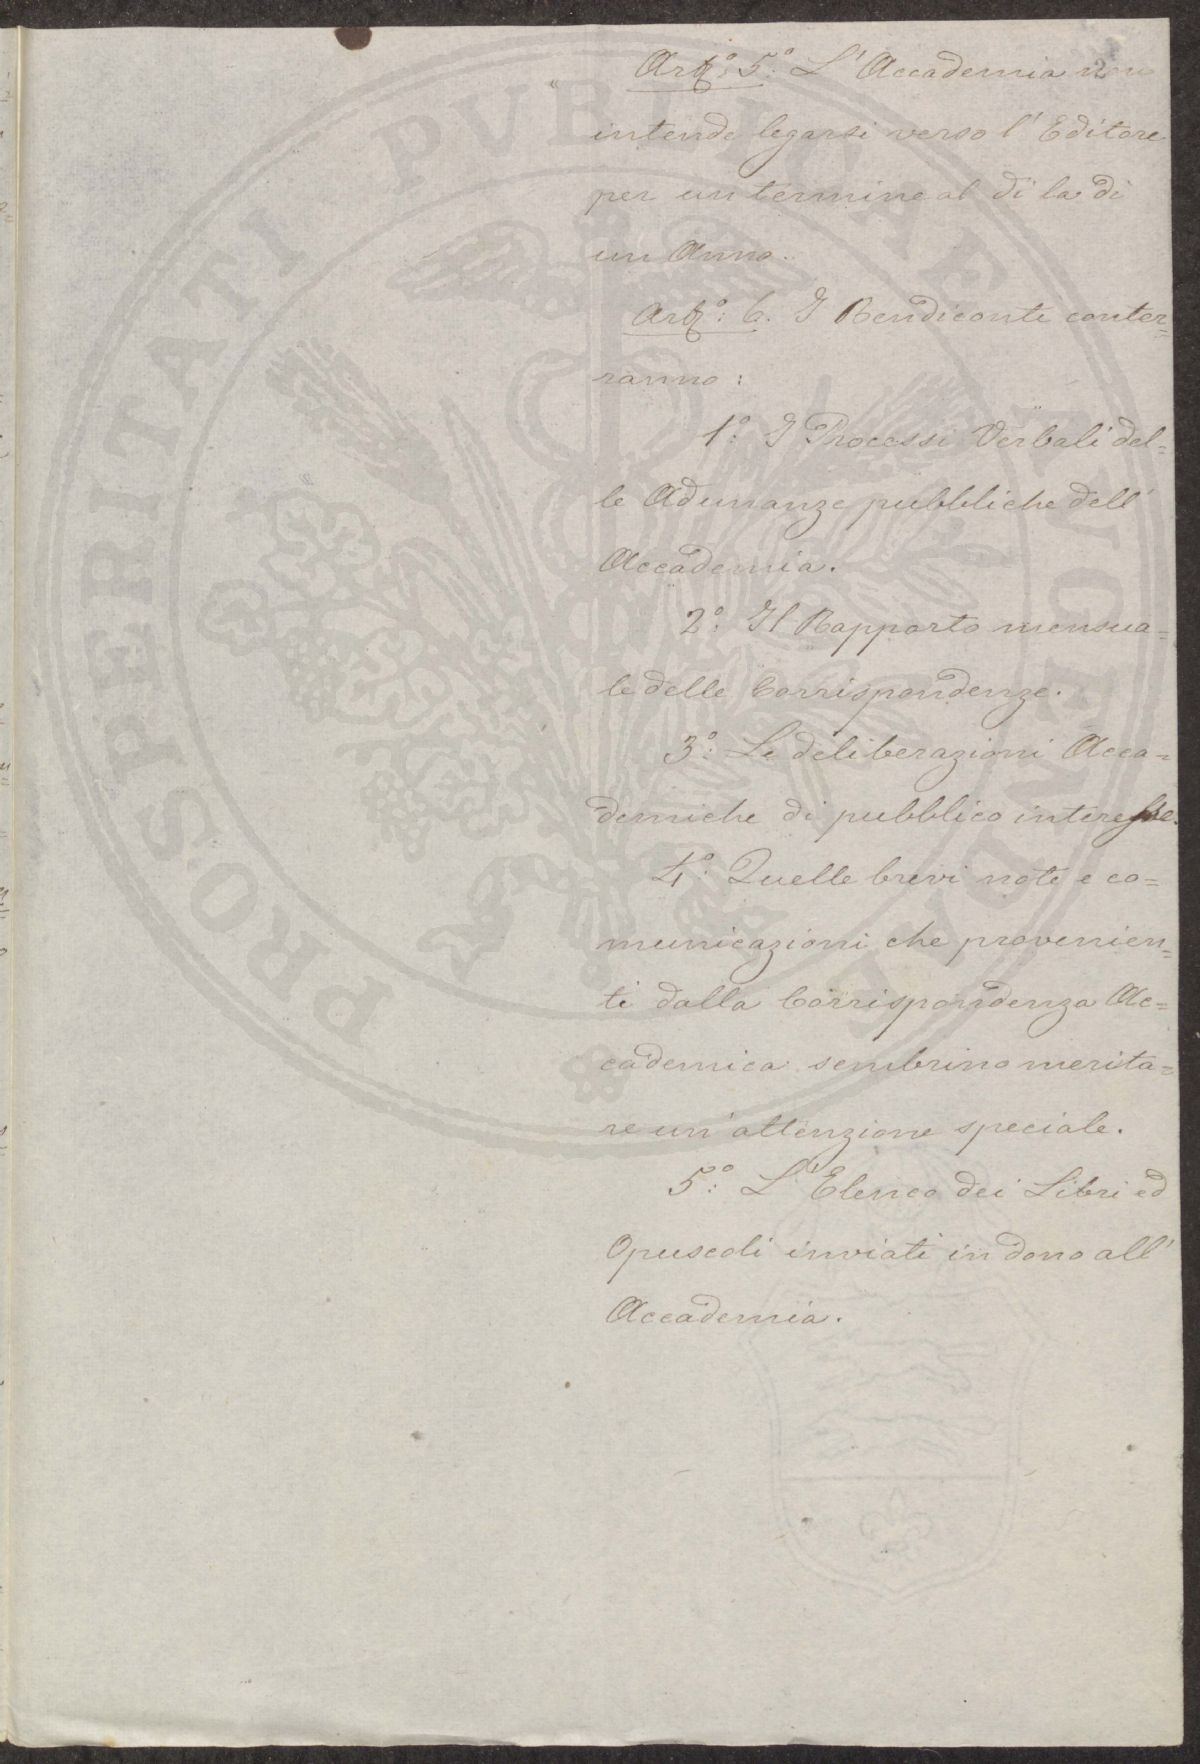 Art.º 5.º L'Accademia non
intende legarsi verso l'Editore
per un termine al di la di
un Anno.
Art.º: 6. I Rendiconti conter=
ranno:
1.º I Processi Verbali del=
le Adunanze pubbliche dell'
Accademia.
2.º Il Rapporto mensua=
le delle Corrispondenze.
3.º Le deliberazioni Acca=
demiche di pubblico interesse.
4.º Quelle brevi note e co=
municazioni che provenien=
ti dalla Corrispondenza Ac=
cademica sembrino merita=
re un'attenzione speciale.
5.º L'Elenco dei Libri ed
Opuscoli inviati in dono all'
Accademia.
PROSPERITATI PUBLICAE AUGENDAE